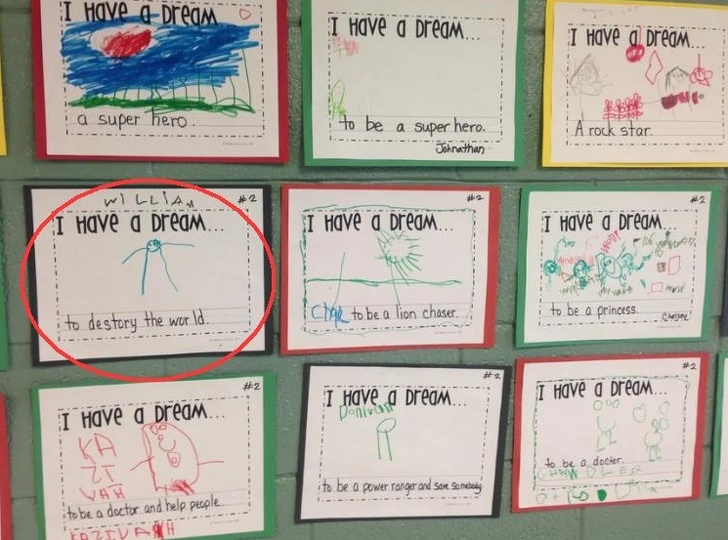 I Have a Dream...
a super hero.
I Have a Dream...
to be a super hero.
Johnathan
I Have a Dream...
A rock star.
WILLIAM
#2
I Have a Dream...
to destory the world.
#2
I Have a Dream...
to be a lion chaser.
#2
I Have a Dream...
to be a princess.
#2
I Have a Dream...
KA
ZI
VAH
to be a doctor and help people.
KAZIVAH
#2
I Have a Dream...
Donivan
to be a power ranger and save somebody.
#2
I Have a Dream...
to be a doctor.